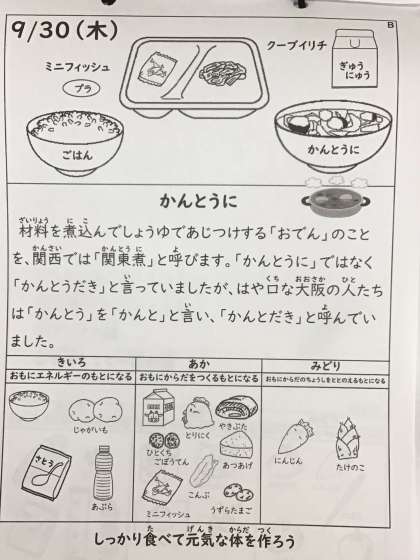 9/30(木)
B
クーブイリチ
ミニフィッシュ
プラ
ぎゅう
にゅう
ごはん
かんとうに
かんとうに
材料を煮込んでしょうゆであじつけする「おでん」のこと
ざいりょう に こ
を、関西では「関東煮」と呼びます。「かんとうに」ではなく
かんさい かんとう に よ
「かんとうだき」と言っていましたが、はや口な大阪の人たち
い くち おおさか ひと
は「かんとう」を「かんと」と言い、「かんとだき」と呼んでい
い よ
ました。
きいろ
あか
みどり
おもにエネルギーのもとになる
おもにからだをつくるもとになる
おもにからだのちょうしをととのえるもとになる
じゃがいも
さとう
あぶら
とりにく
やきぶた
ひとくち
ごぼうてん
あつあげ
こんぶ
ミニフィッシュ
うずらたまご
にんじん
たけのこ
しっかり食べて元気な体を作ろう
た げんき からだ つく